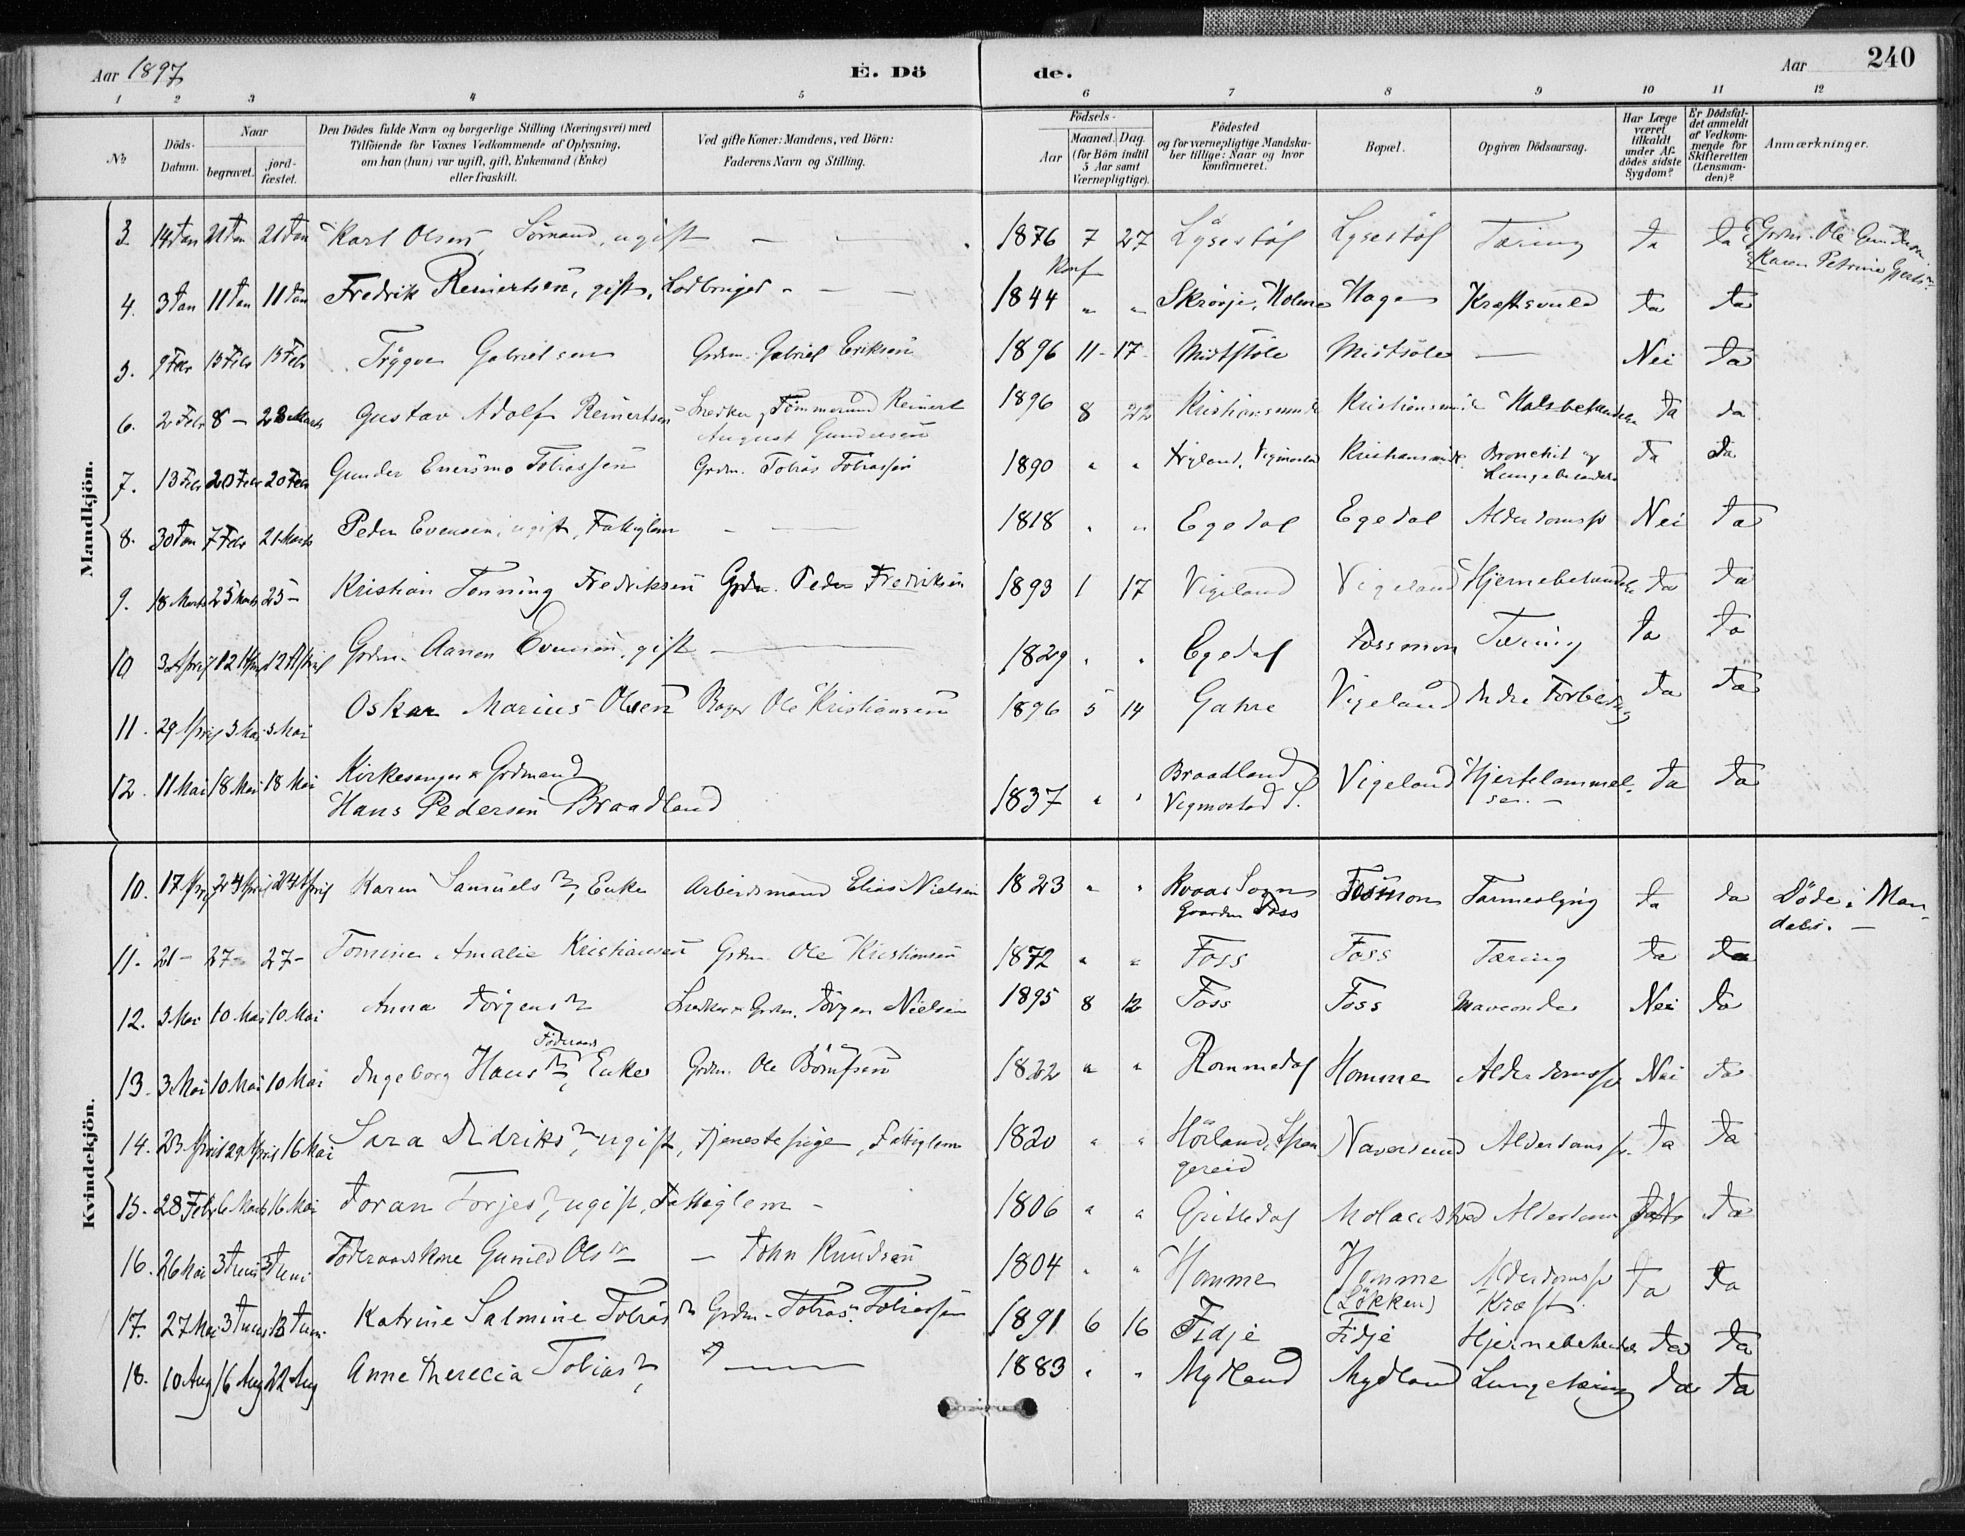 Aar 1897 E. Dö de. Aar 240
1 2 3 4 5 6 7 8 9 10 11 12
No
Döds-Datum.
Naar
begravet.
jord-fæstet.
Den Dödes fulde Navn og borgerlige Stilling (Næringsvei) med
Tilföiende for Voxnes Vedkommende af Oplysning,
om han (hun) var ugift, gift, Enkemand (Enke)
eller fraskilt.
Ved gifte Koner: Mandens, ved Börn:
Faderens Navn og Stilling.
Födsels-
Aar
Maaned. Dag.
(for Börn indtil
5 Aar samt
Værnepligtige).
Födested
og for værnepligtige Mandska-
ber tillige: Naar og hvor
konfirmeret.
Bopæl.
Opgiven Dödsaarsag.
Har Læge
været
tilkaldt
under Af-
dödes sidste
Sygdom?
Er Dödsfal-
det anmeldt
af Vedkom-
mende for
Skifteretten
(Lensman-
den)?
Anmærkninger.
Mandkjön.
3. 14 Jan 21 Jan 21 Jan Karl Olsen, Sömand, ugift — — 1876 7 27 Lysestöl Lysestöl Tæring Ja Ja Grdm. Ole Gundersen
Konf Karen Petrine
4. 3 Jan 11 Jan 11 Jan Fredrik Reinertsen, gift, Lodbruger — — 1844 " " Skröoje, Holme Hage Kræftsvuld Ja Ja
5. 9 Febr 15 Febr 15 Febr Trygve Gabrielsen Grdm. Gabriel Eriksen 1896 11 - 17 Midtstöle Midtstöle — Nei Ja
6. 2 Febr 8 — 28 Marts Gustav Adolf Reinertsen Snedker & Tömmermand Reinert 1896 8 22 Kristiansminde Kristiansminde Halsbetændelse Ja Ja
August Gundersen
7. 13 Febr 20 Febr 20 Febr Gunder Enersmo Tobiassen Grdm. Tobias Tobiassen 1890 " " Vigmostad Kristiansminde Bronchit og Ja Ja
Lungebetændelse
8. 30 Jan 7 Febr 21 Marts Peder Evensen, ugift, Fattiglem — — 1818 " " Egedal Egedal Alderdomssv Nei Ja
9. 18 Marts 25 Marts 25 — Kristian Tonning Fredriksen Grdm. Peder Fredriksen 1893 1 17 Vigeland Vigeland Hjernebetændelse Ja Ja
10 3 April 12 April 12 April Grdm. Aanon Evensen, gift — 1829 " " Egedal Fossmon Tæring Ja Ja
11. 29 April 3 Mai 3 Mai Oskar Marius Olsen Bager Ole Kristiansen 1896 5 14 Gahre Vigeland Indre Forblödning Ja Ja
12. 11 Mai 18 Mai 18 Mai Kirkesanger & Grdmand Braadland Vigeland Hjertelammel- Ja Ja
Hans Pedersen Braadland 1837 " " Vigmostad S. se. —
Kvindekjön.
10. 17 April 24 April 24 April Karen Samuels dtr, Enke Arbeidsmand Elias Nielsen 1823 " " Kvaas Sogn Fossmon Tarmeslyng Ja Ja Döde i Man-
Gaarden Foss dalen. —
11. 21 — 27 — 27 — Tomine Amalie Kristiansen Grdm. Ole Kristiansen 1872 " " Foss Foss Tæring Ja Ja
12. 3 Mai 10 Mai 10 Mai Anna Jörgens dtr Snedker & Grdm. Jörgen Nielsen 1895 8 12 Foss Foss Maveonde Nei Ja
Föderaads
13. 3 Mai 10 Mai 10 Mai Ingeborg Hans dtr, Enke Grdm. Ole Börufsen 1822 " " Rommedal Homme Alderdomssv Nei Ja
14. 23 April 29 April 16 Mai Sara Didriks dtr ugift, Tjenestepige, Fattiglem 1820 " " Hörland, Span- Naversund Alderdomssv. Ja Ja
gereid
15. 28 Febr 6 Marts 16 Mai Joran Torjes dtr, ugift, Fattiglem — 1806 " " Gritledal Alderdom Ja
16. 26 Mai 3 Juni 3 Juni Föderaadskone Gunild Ols dtr — John Knudsen 1804 " " Homme Homme Alderdomssv Ja Ja
(Lökken) Kræft.
17. 27 Mai 3 Juni 13 Juni Katrine Salmine Tobias dtr Grdm. Tobias Tobiassen 1891 6 16 Fidje Fidje Hjernebetændelse Ja Ja
18. 10 Aug 16 Aug 22 Aug Anne Therecia Tobias dtr — 1883 " " Mydland Mydland Lungetæring Ja Ja